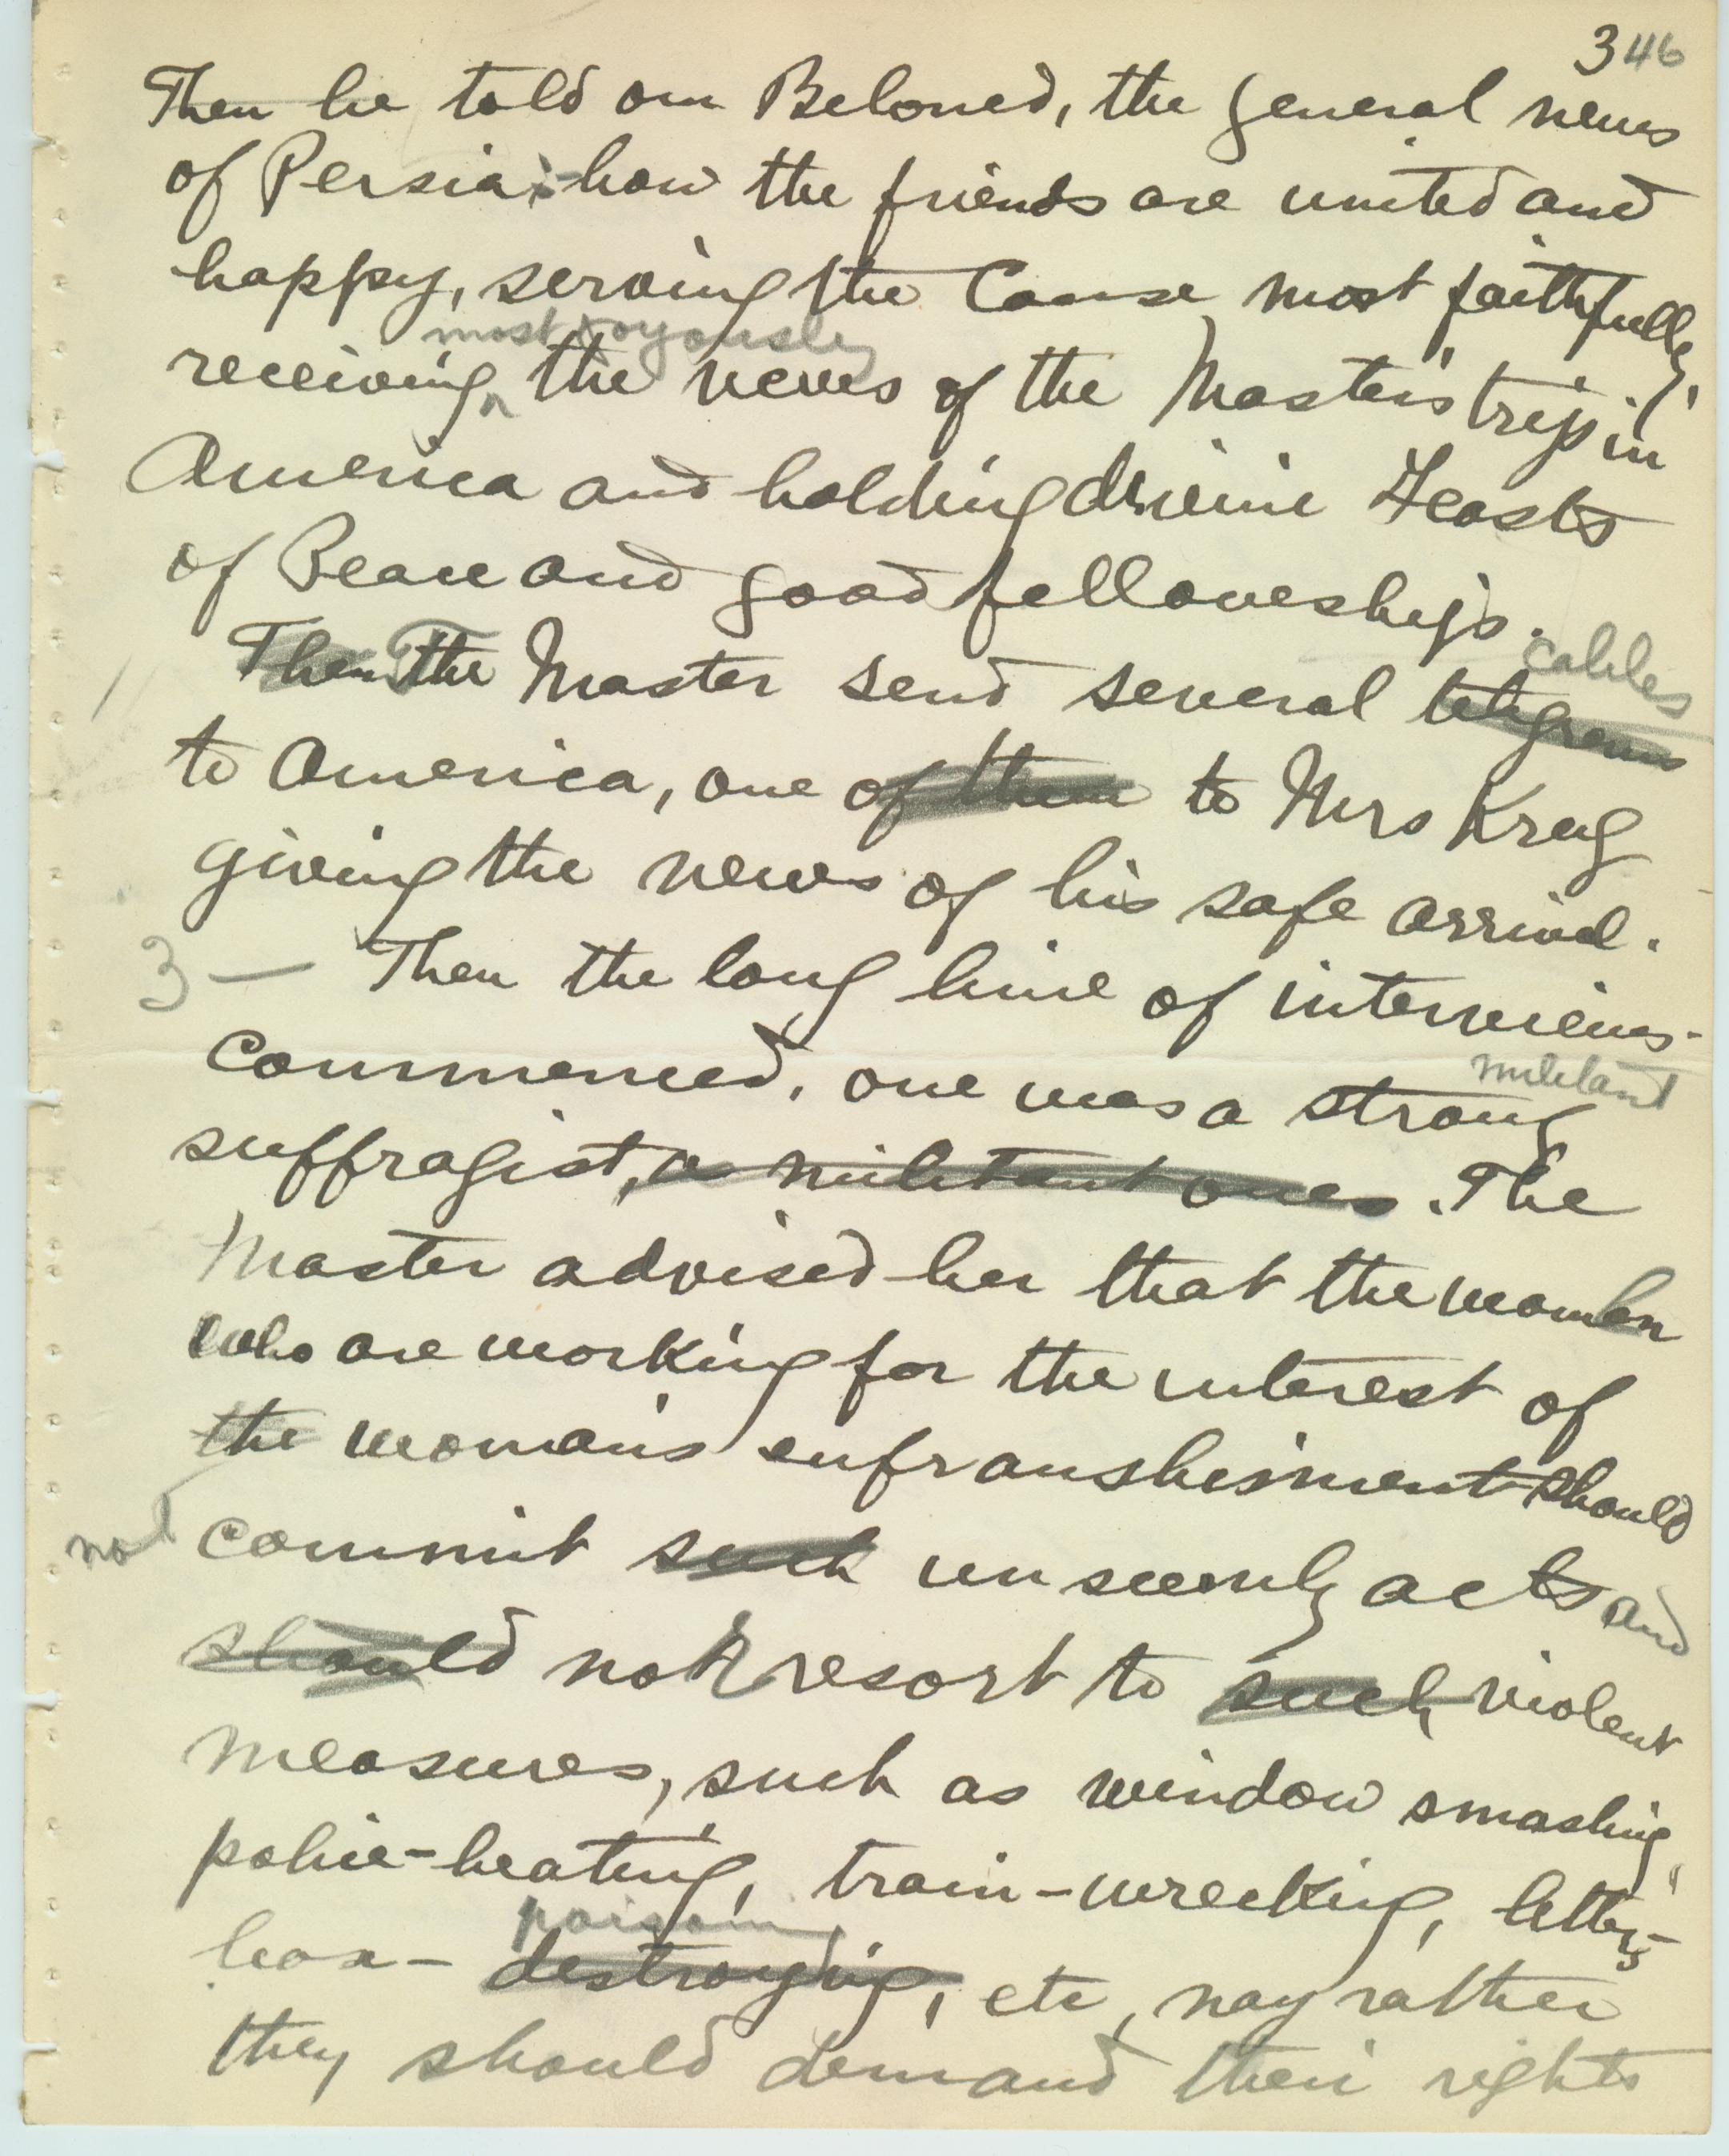 346
Then he told our Beloved, the general news
of Persia:- how the friends are united and
happy, serving the Cause most faithfully,
most joyously
receiving the news of the Master's trip in
America and holding divine Feasts
of Peace and good fellowship.
cables
Then The Master send several telegrams
to America, one of them to Mrs Krug
giving the news of his safe arrival.
3 — Then the long line of interviews
militant
commenced, one was a strong
suffragist, a militant ones. The
Master advised her that the women
who are working for the interest of
the woman's enfranshisment should
not commit such unseemly acts and
should not resort to such violent
measures, such as window smashing,
police-beating, train-wrecking, letter-
poison
box- destroying, etc, nay rather
they should demand their rights